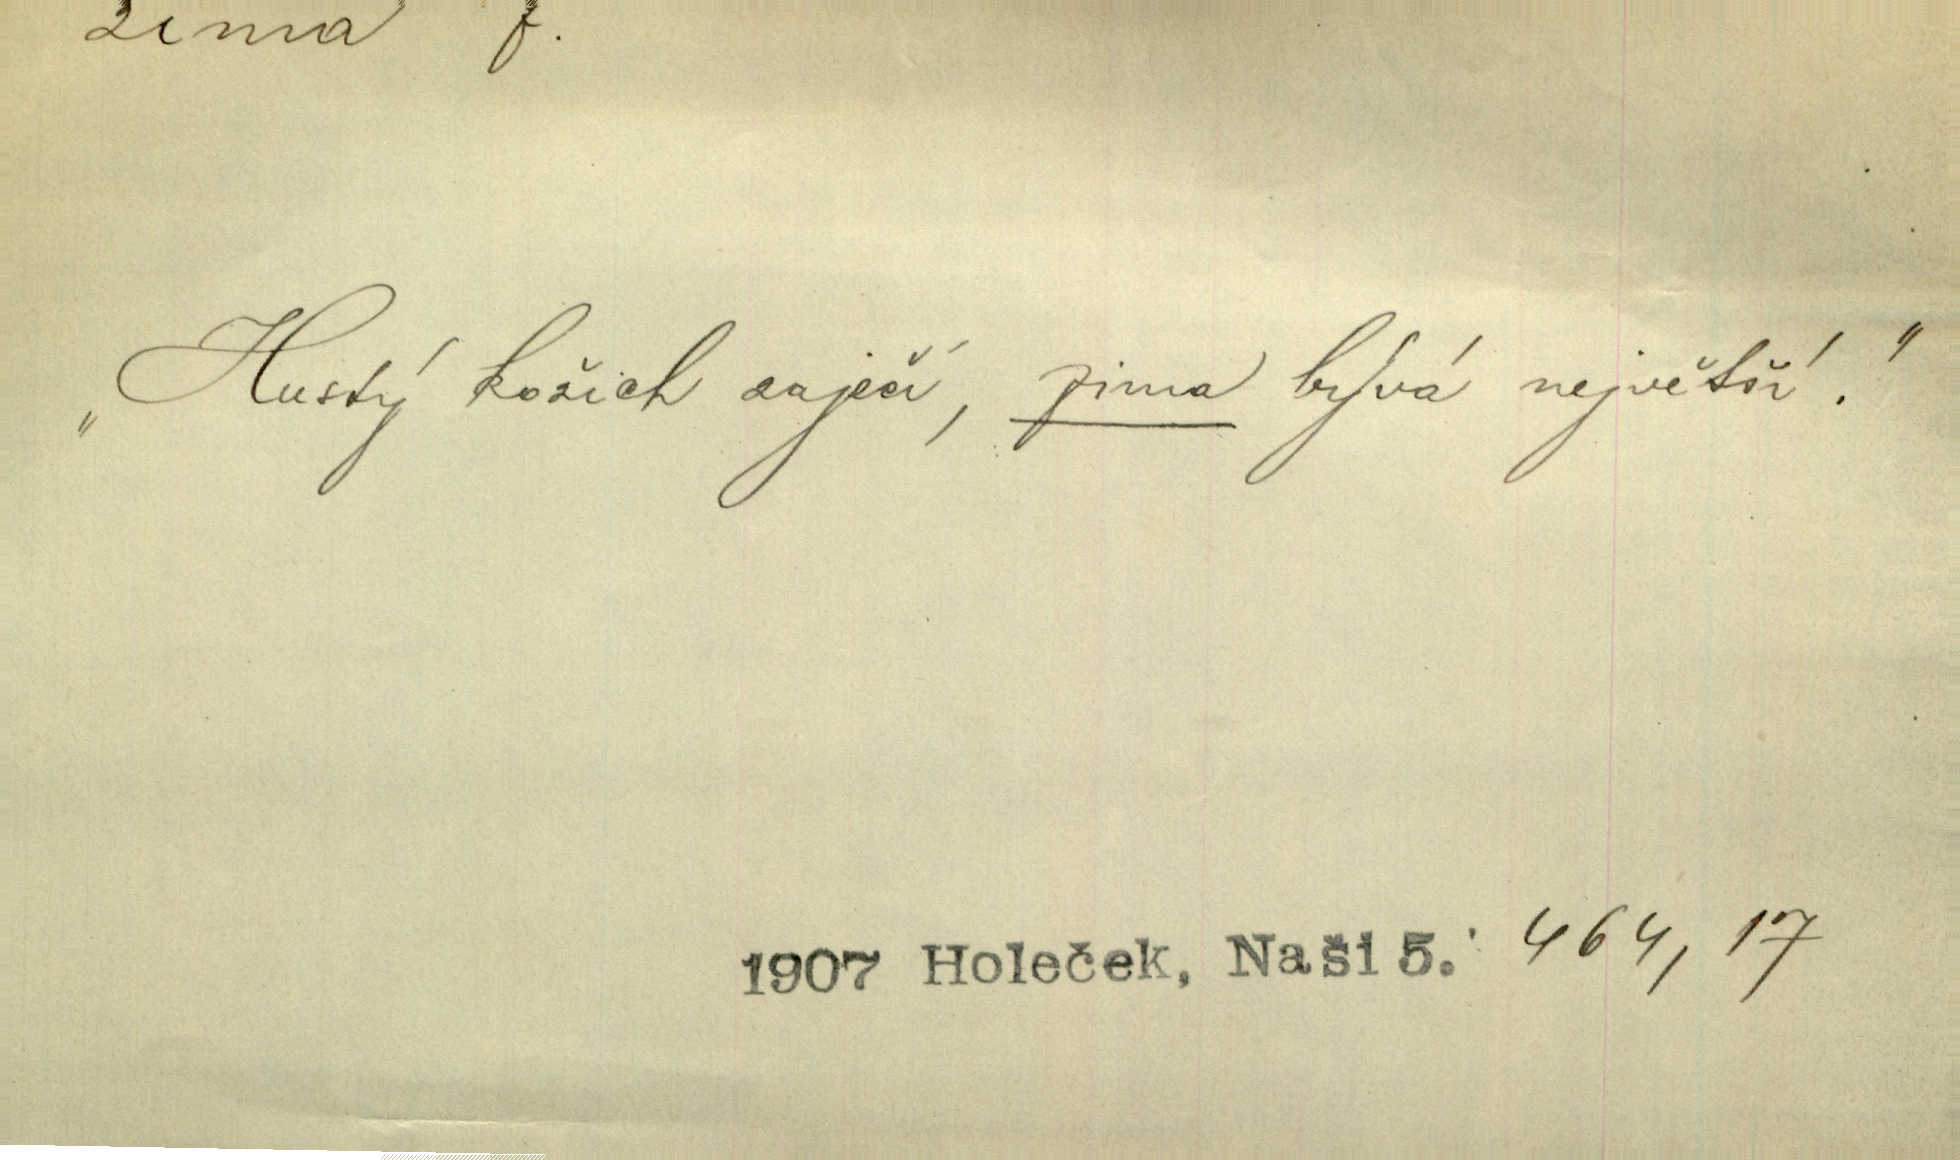 zima f.
„Hustý kožich zaječí, zima bývá největší."
1907 Holeček, Naši 5. 464, 17